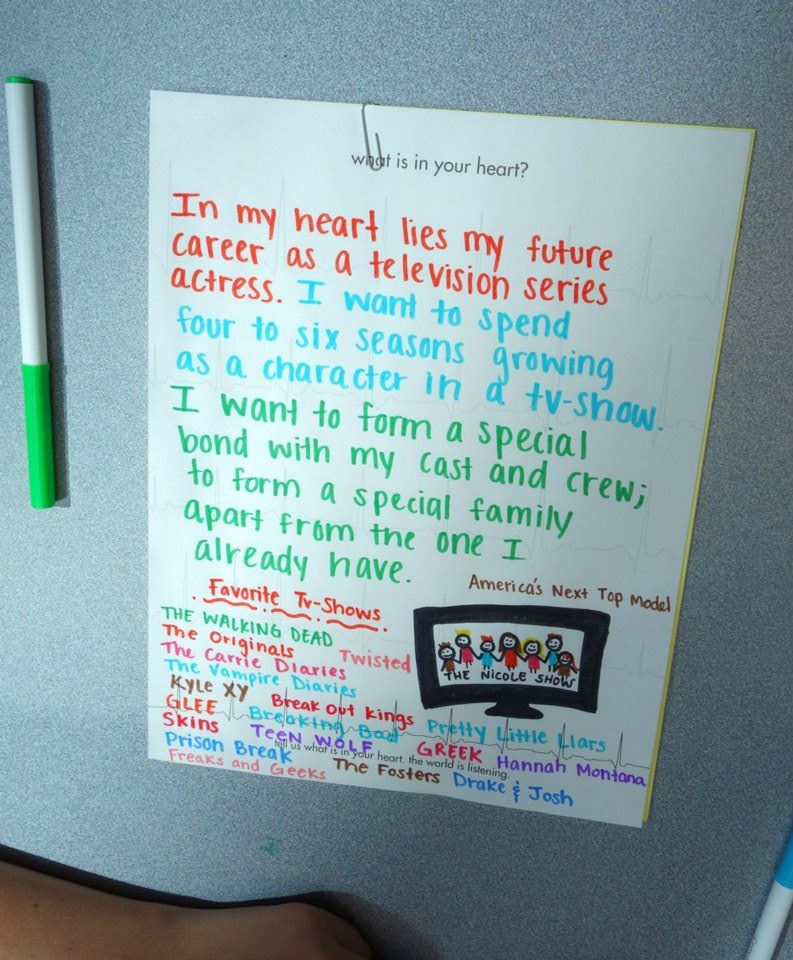 what is in your heart?
In my heart lies my future
career as a television series
actress. I want to spend
four to six seasons growing
as a character in a tv-show.
I want to form a special
bond with my cast and crew;
to form a special family
apart from the one I
already have.
America's Next Top Model
. Favorite Tv-Shows .
THE WALKING DEAD
The Originals
Twisted
The Carrie Diaries
The Vampire Diaries
THE NICOLE SHOW
Kyle XY
Break Out Kings
GLEE
Breaking Bad
Pretty Little Liars
Skins
TEEN WOLF
GREEK
Hannah Montana
Prison Break
tell us what is in your heart. the world is listening.
Freaks and Geeks
The Fosters
Drake & Josh